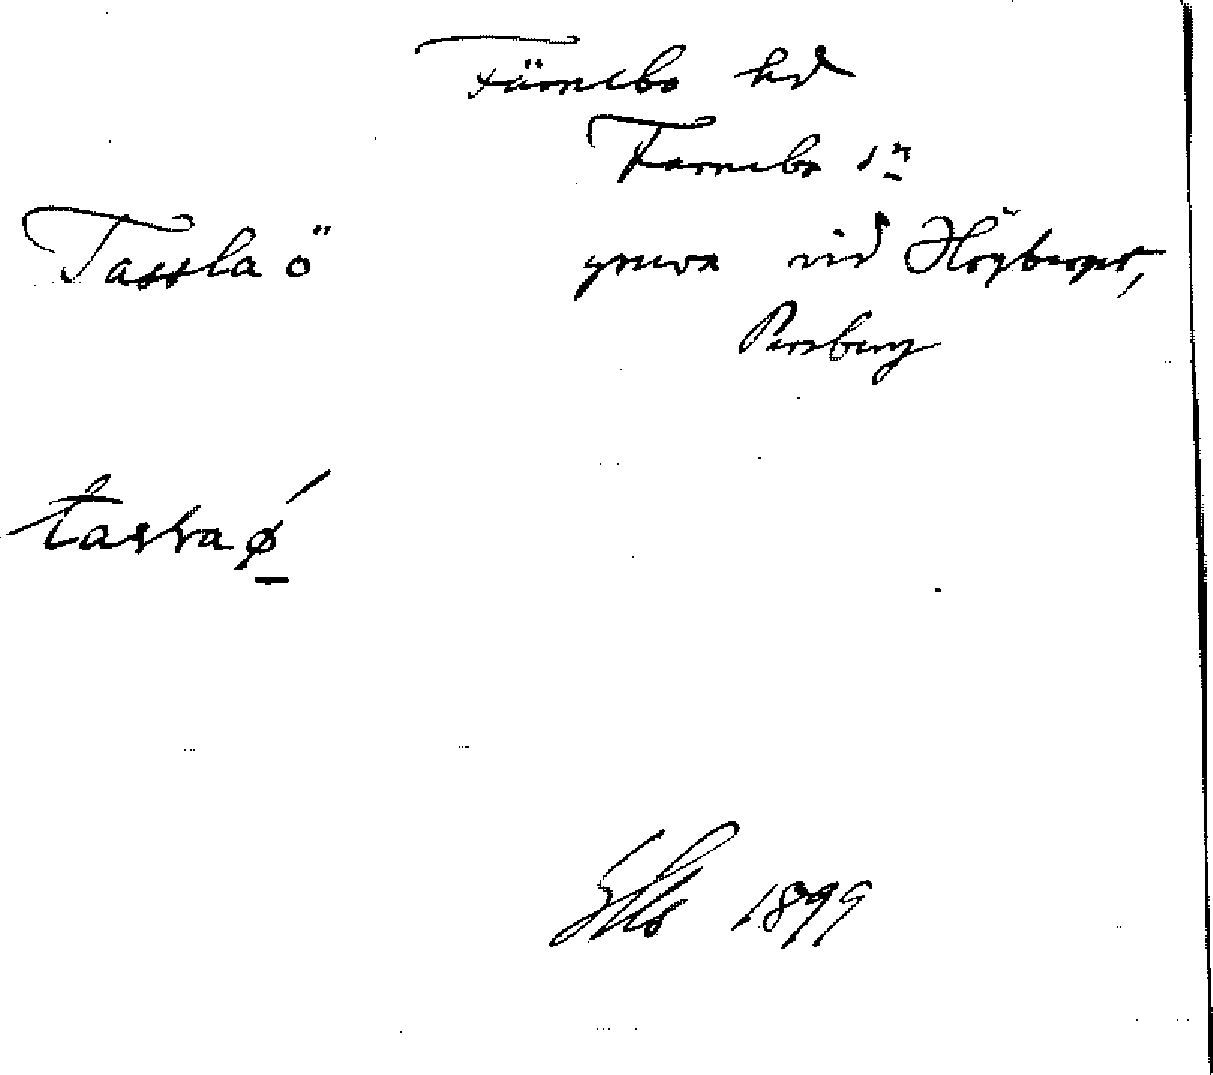 Färnebo hd
Färnebo sn
Tasslaö gruva vid Högberget,
Persberg
1899